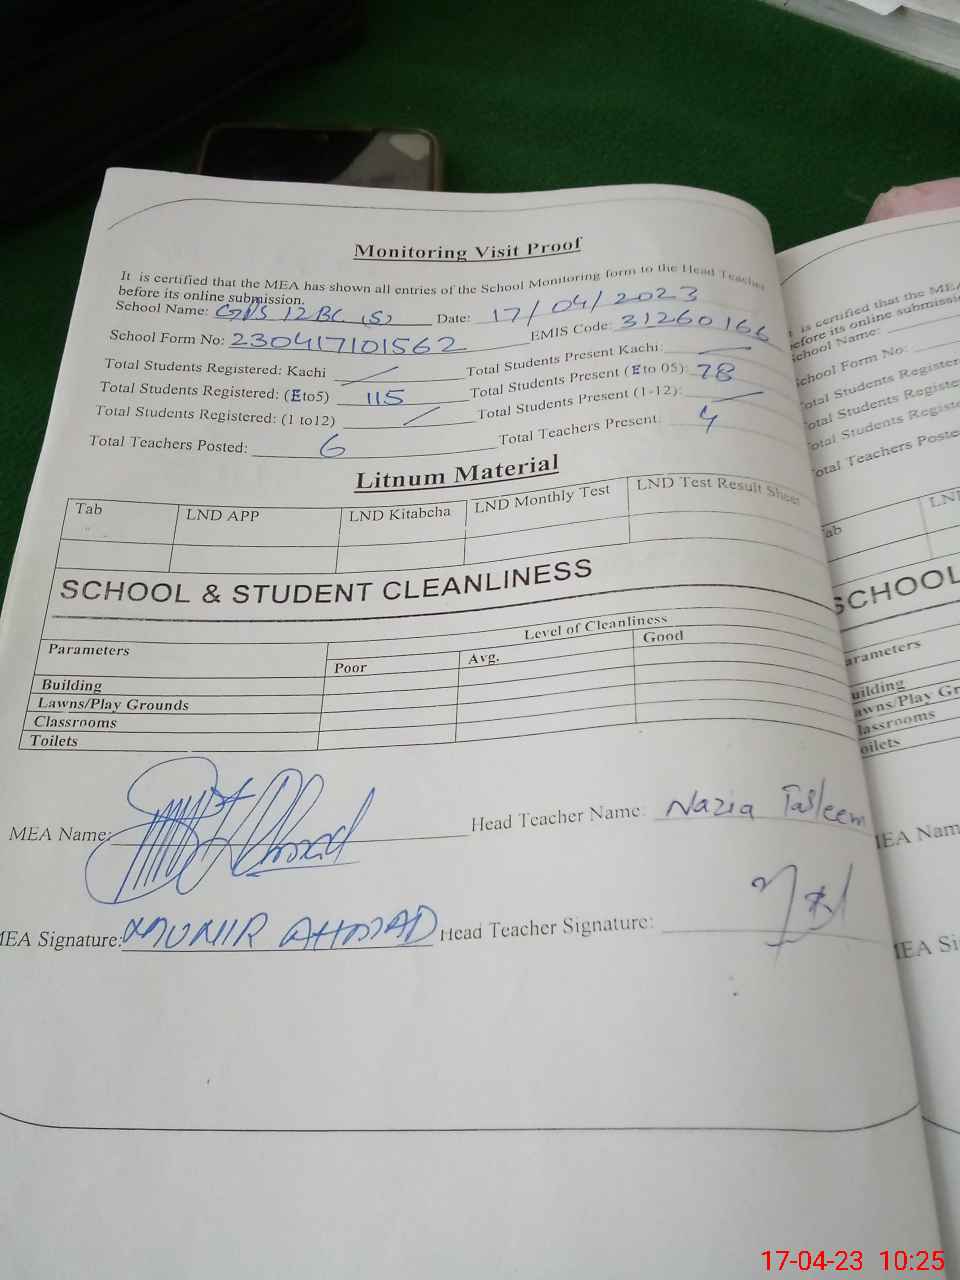 Monitoring Visit Proof
It is certified that the MEA has shown all entries of the School Monitoring form to the Head Teacher
before its online submission.
School Name: GPS 12 BC (S) Date: 17/04/2023
School Form No: 230417101562 EMIS Code: 31260166
Total Students Registered: Kachi / Total Students Present Kachi: /
Total Students Registered: (Eto5) 115 Total Students Present (Eto 05): 78
Total Students Registered: (1 to12) / Total Students Present (1-12): /
Total Teachers Posted: 6 Total Teachers Present: 4
Litnum Material
Tab LND APP LND Kitabcha LND Monthly Test LND Test Result Sheet
SCHOOL & STUDENT CLEANLINESS
Parameters Level of Cleanliness
Poor Avg. Good
Building
Lawns/Play Grounds
Classrooms
Toilets
MEA Name: Head Teacher Name: Nazia Tasleem
MEA Signature: MUNIR AHMAD Head Teacher Signature:
It is certified that the MEA
before its online submission
School Name:
School Form No:
Total Students Register
Total Students Registe
Total Students Registe
Total Teachers Poste
Tab LND
SCHOOL
Parameters
Building
Lawns/Play Gr
Classrooms
Toilets
MEA Nam
MEA Si
17-04-23 10:25